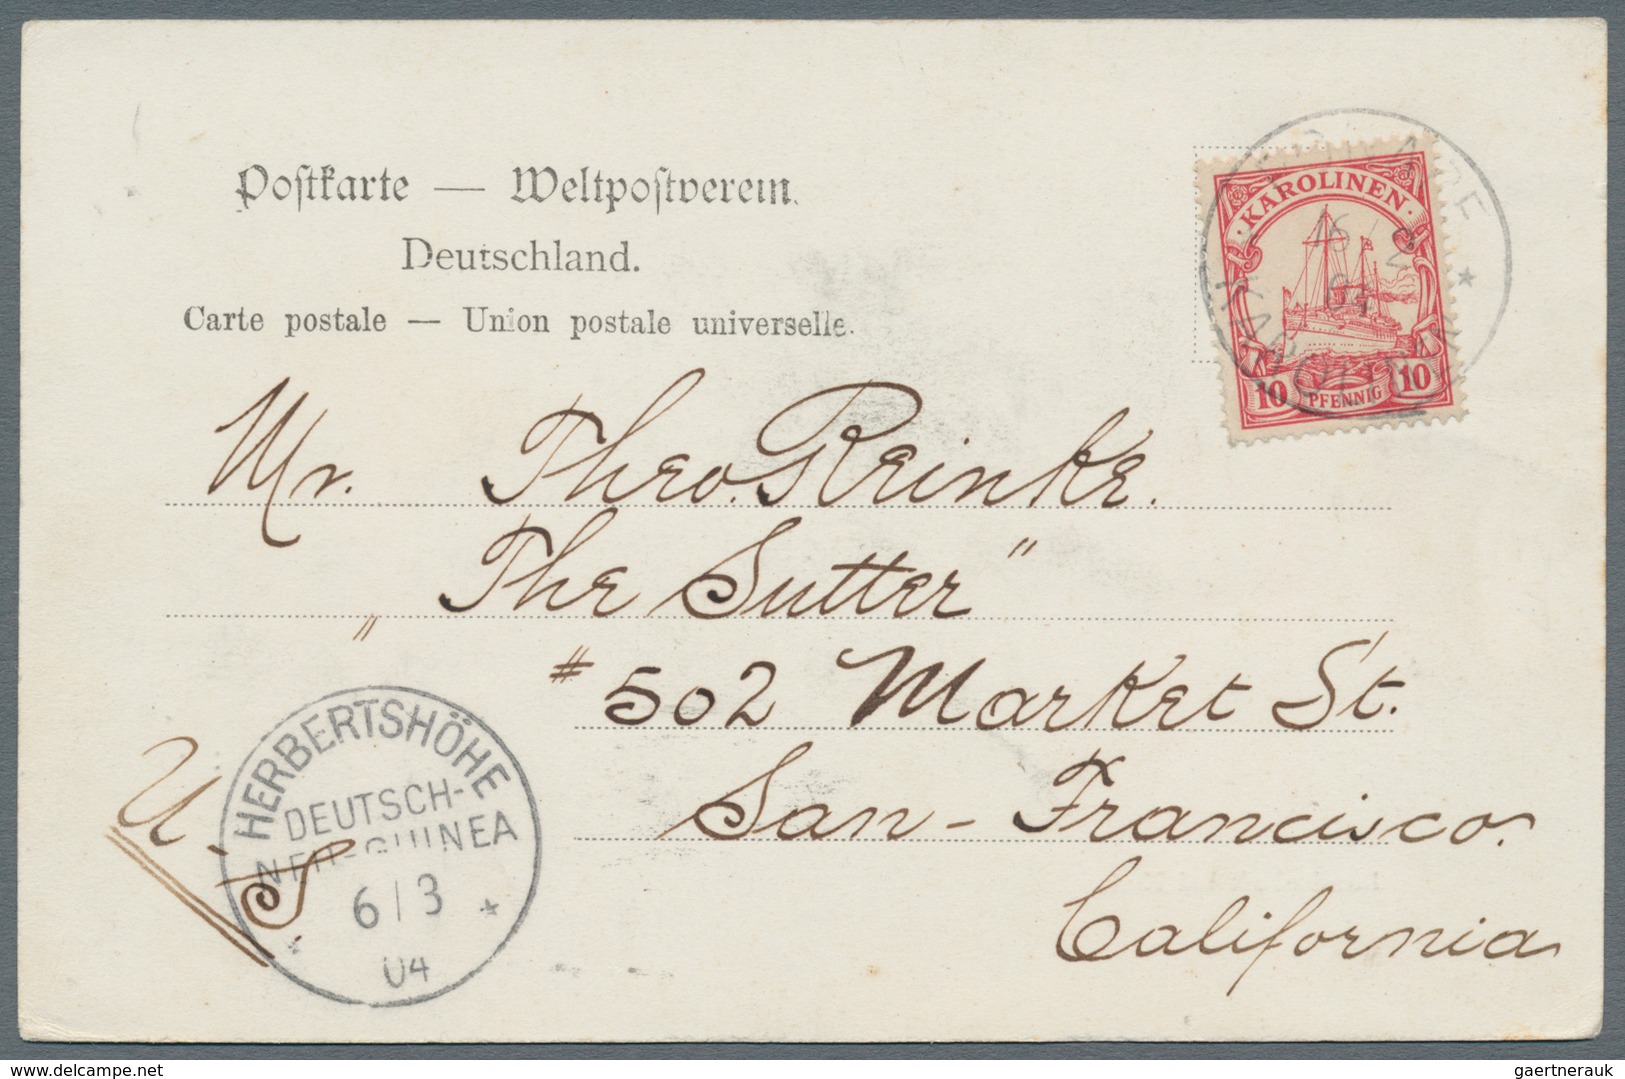 Postkarte — Weltpostverein.
Deutschland.
Carte postale — Union postale universelle.
KAROLINEN
10 PFENNIG 10
16/2
04
KAROLINEN
Mr. Theo. Reinke.
„The Sutter"
# 502 Market St.
San-Francisco.
California
U.S.
HERBERTSHÖHE
DEUTSCH-
NEU-GUINEA
6/3
04
www.delcampe.net
gaertnerauk